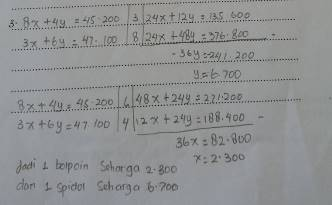 3. 8x + 4y = 45.200 | 3 | 24x + 12y = 135.600
3x + 6y = 47.100 | 8 | 24x + 48y = 376.800 -
-36y = 241.200
y = 6.700
8x + 4y = 45.200 | 6 | 48x + 24y = 271.200
3x + 6y = 47.100 | 4 | 12x + 24y = 188.400 -
36x = 82.800
x = 2.300
Jadi 1 bolpoin Seharga 2.300
dan 1 Spidol Seharga 6.700